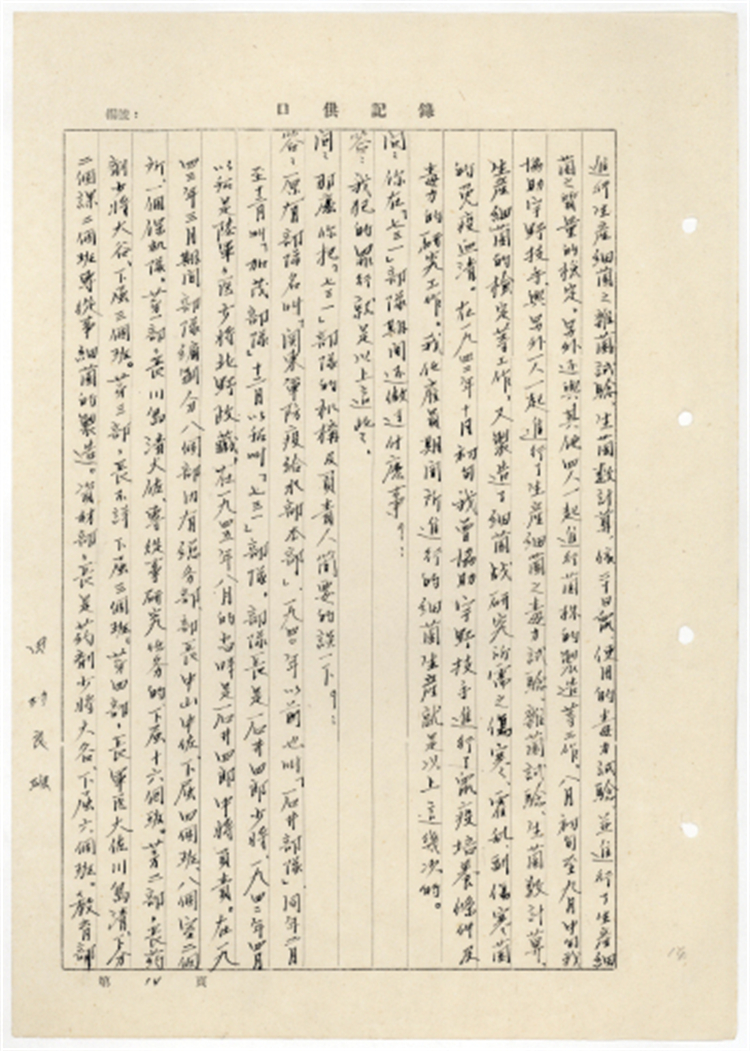 口供記錄
編號：
進行生產細菌之雜菌試驗、生菌數計算、使用的毒力試驗、並進行了生產細
菌之質量的檢定。另外還與其他四人一起進行菌株的製造等工作。八月初旬至九月中旬我
協助宇野技手與另外一人一起進行了生產細菌之毒力試驗、雜菌試驗、生菌數計算、
生產細菌的檢定等工作。又製造了細菌战研究所需之傷寒、霍乱、副傷寒菌
的免疫血清。在一九四三年十月初旬我曾協助宇野技手進行了鼠疫培養條件及
毒力的研究工作。我他雇員期間所進行的細菌生產就是以上這幾次的。
問：你在「七三一」部隊期間还做过什麼事？：
答：我犯的罪行就是以上這些。
問：那麼你把「七三一」部隊的机構及負責人簡要的談一下？：
答：原有部隊名叫「関東軍防疫給水部本部」、一九四〇年以前也叫「石井部隊」同年
至十二月叫「加茂部隊」十二月以后叫「七三一」部隊。部隊長是石井四郎少將、一九四二年四月
以后是陸軍軍医少將北野政藏、在一九四五年八月的当時是石井四郎中將負責。在一九
四三年三月期間部隊編制分八個部内有總务部、部長中山中佐、下屬四個班、八個室、二個
所、一個保机隊。第一部、長川島清大佐、專從事研究任务的下屬十六個班。第二部、長药
劑少將大谷、下屬三個班。第三部、長不詳下屬三個班。第四部、長軍医大佐川島清、下分
二個課二個班專從事細菌的製造。資材部、長是药劑少將大谷、下屬六個班。教育部
第 14 頁